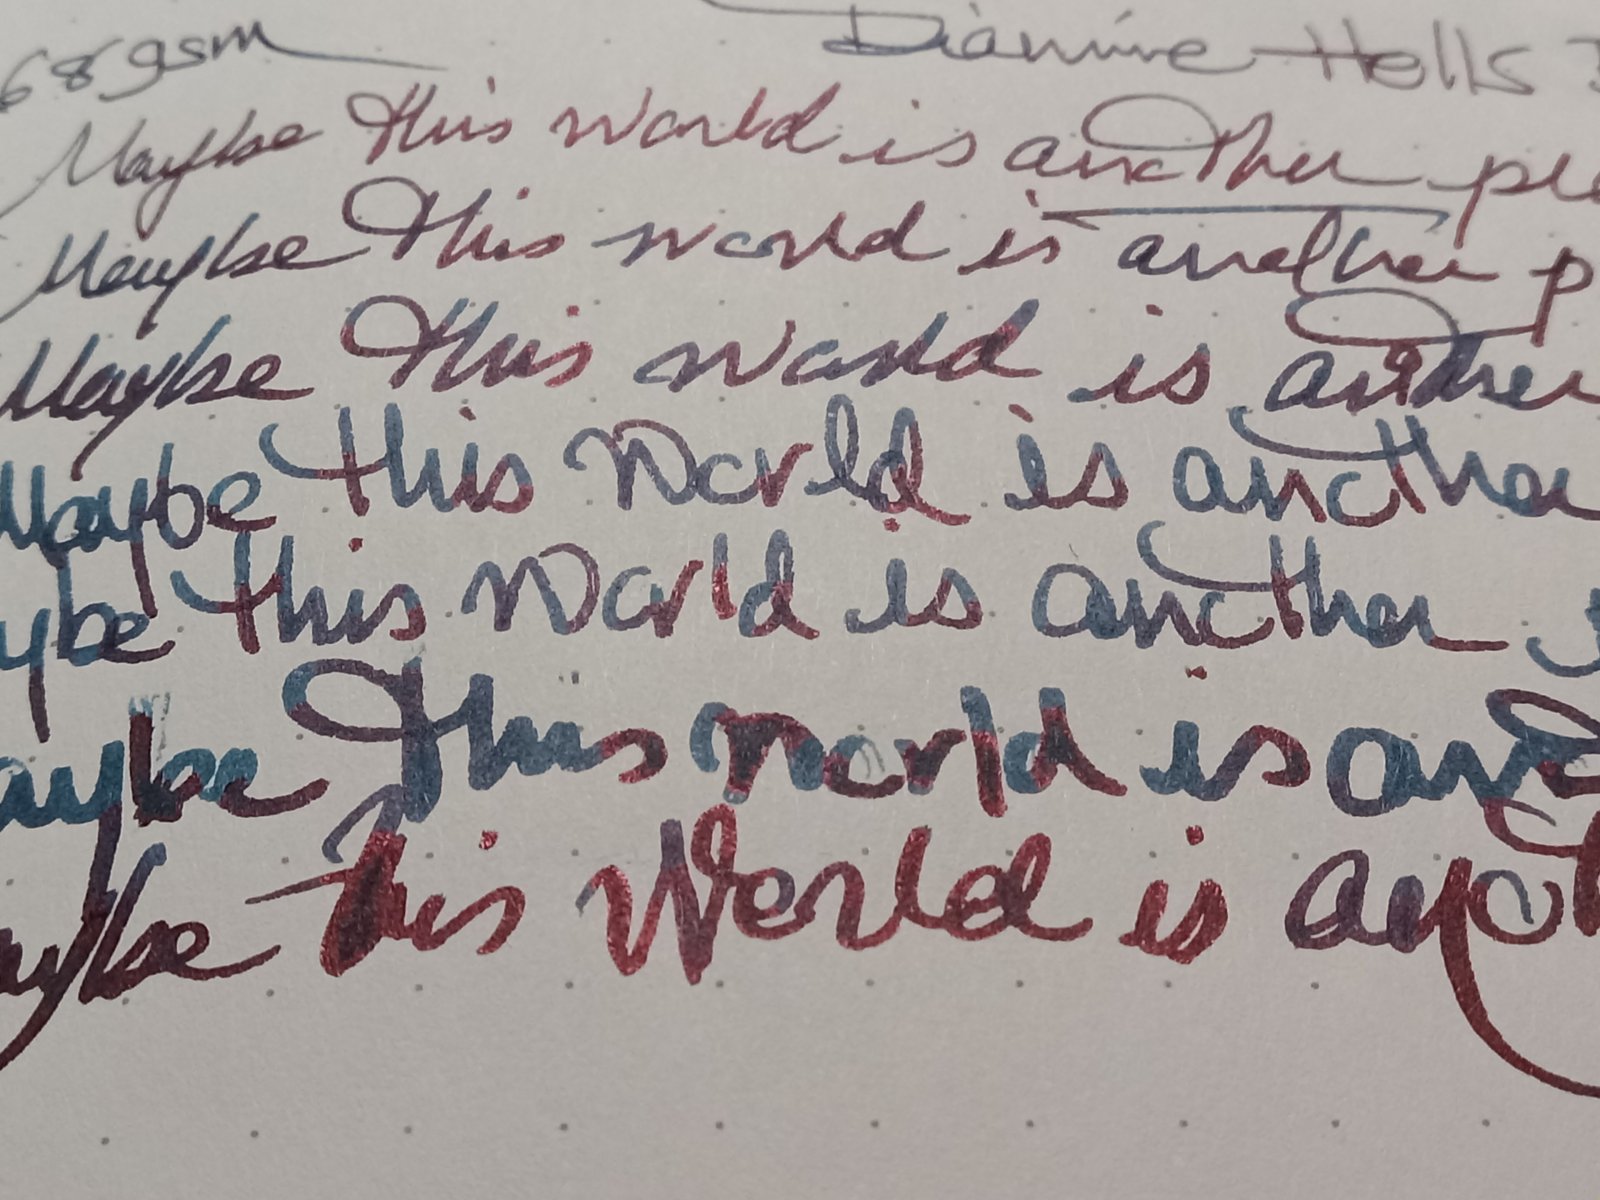 68gsm Diamine Hells
Maybe this world is another
Maybe this world is another p
Maybe this world is another
Maybe this World is another
ybe this World is another
aybe this world is
aybe this World is